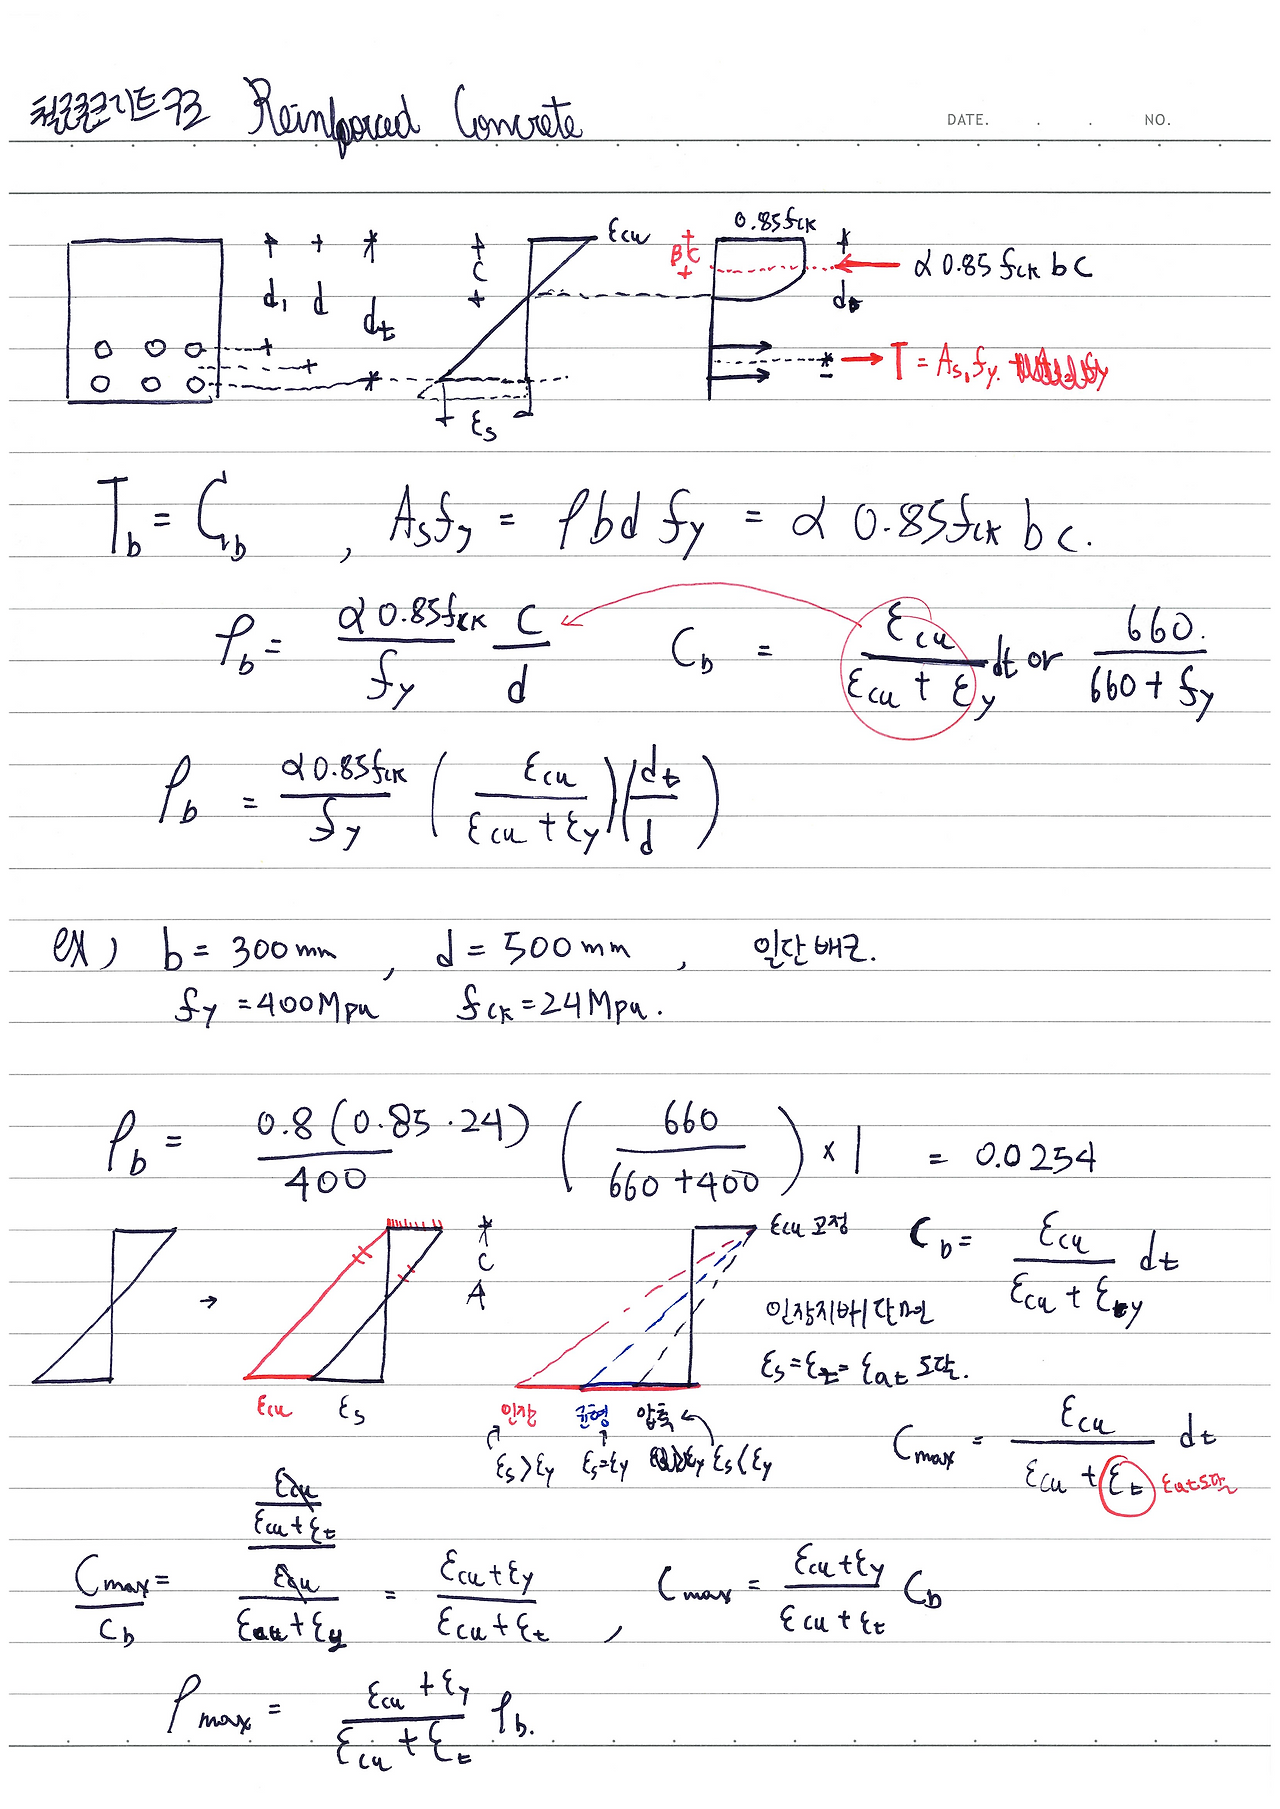 철근콘크리트구조 Reinforced Concrete
DATE. . . NO.
d₁ d dt
C
εcu
εs
0.85fck
βc
α 0.85 fck b c
T = As, fy.
Tb = Cb , As fy = ρbd fy = α 0.85fck b c.
ρb = α 0.85fck / fy c / d Cb = εcu / εcu + εy dt or 660. / 660 + fy
ρb = α 0.85fck / fy ( εcu / εcu + εy ) ( dt / d )
ex) b = 300mm , d = 500mm , 일단배근.
fy = 400Mpa fck = 24Mpa.
ρb = 0.8 (0.85 · 24) / 400 ( 660 / 660 + 400 ) × 1 = 0.0254
→
εcu εs
C
εcu 고정
인장 균형 압축
εs > εy εs = εy εs < εy
Cb = εcu / εcu + εy dt
인장지배단면
εs = εt = εat 도달.
Cmax = εcu / εcu + εt dt εat도달
Cmax / Cb = εcu / εcu + εt / εcu / εcu + εy = εcu + εy / εcu + εt , Cmax = εcu + εy / εcu + εt Cb
ρmax = εcu + εy / εcu + εt ρb.